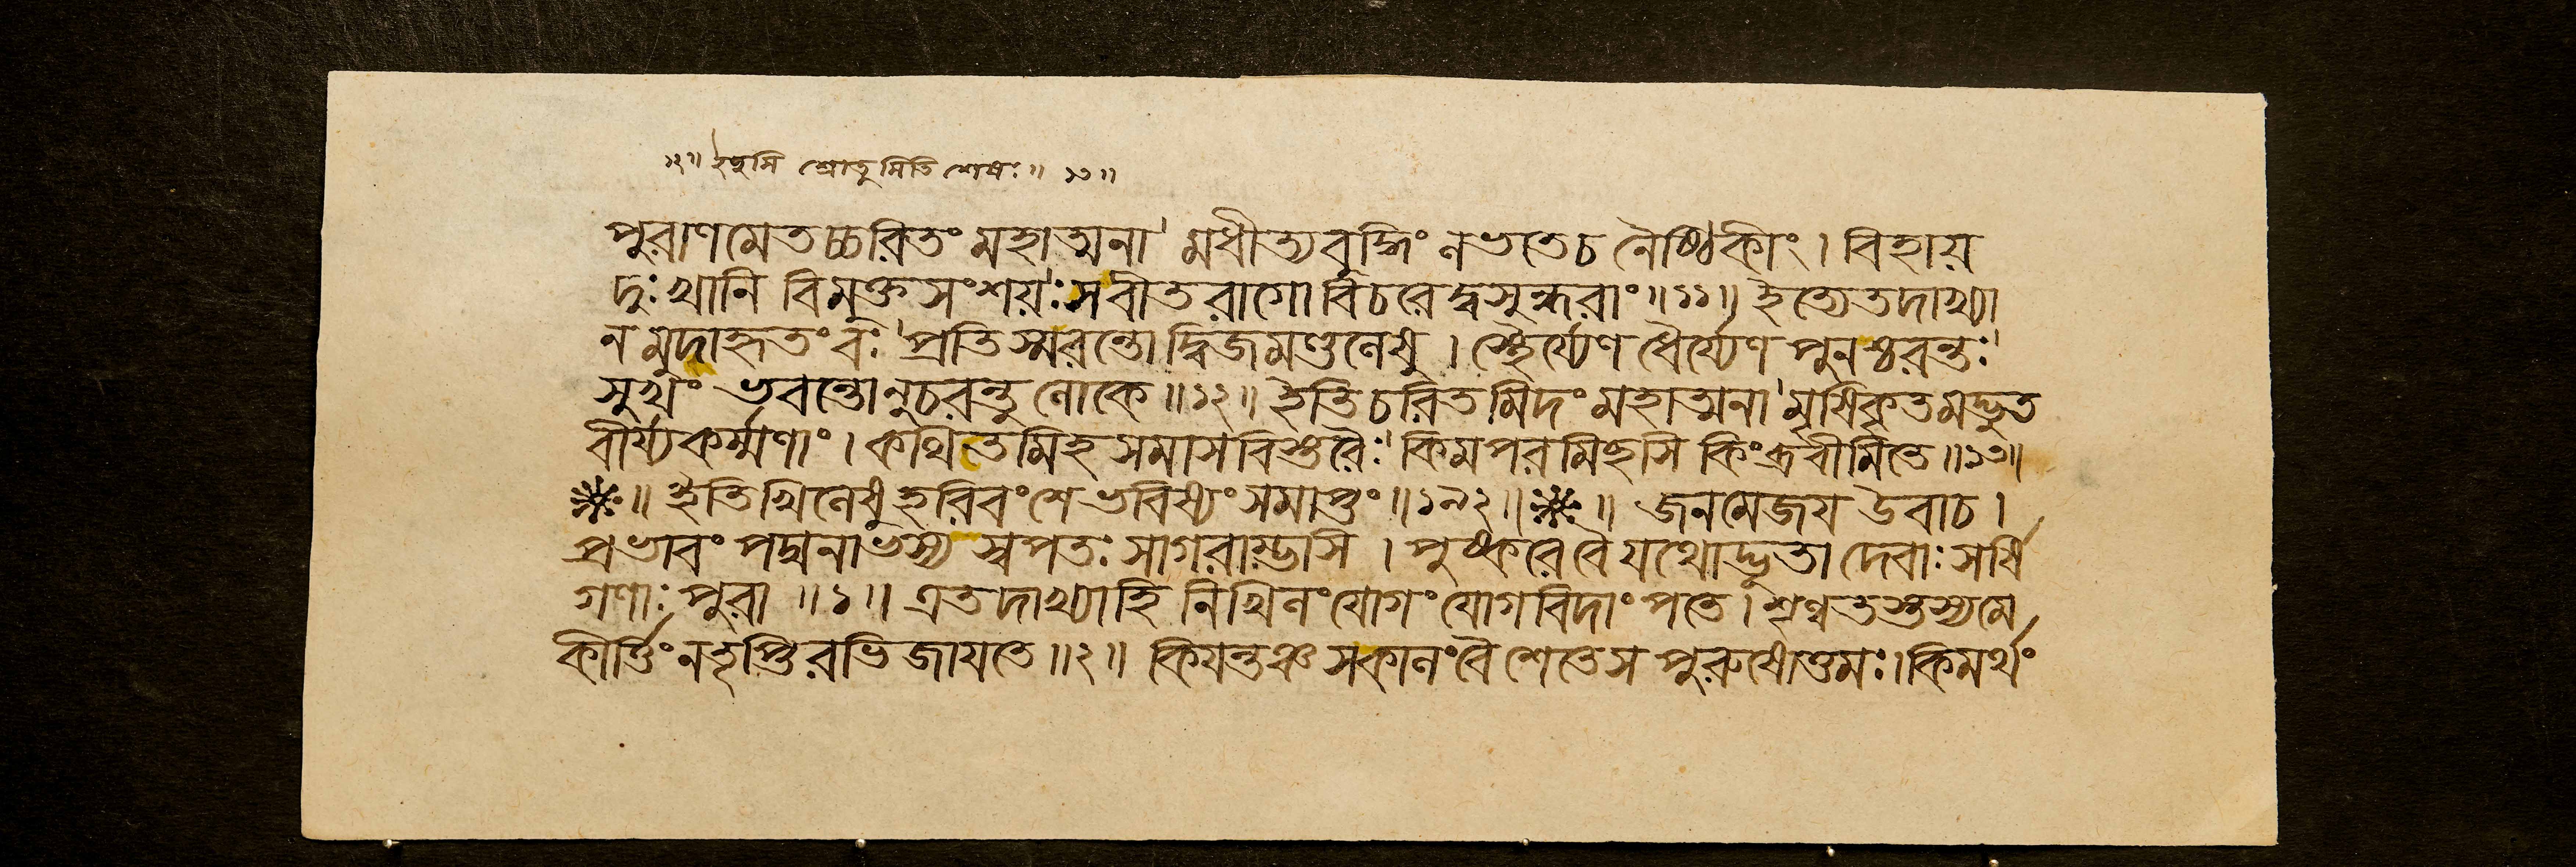 ১২॥ ইচ্ছসি শ্রোতুমিতি শেষঃ॥ ১৩॥
পুরাণমেতচ্চরিতং মহাত্মনা'মধীত্যবুদ্ধিং লভতেচ নৈষ্ঠিকীং। বিহায়
দুঃখানি বিমুক্তসংশয়ঃ'সবীতরাগো বিচরেদ্বসুন্ধরাং॥১১॥ ইত্যেতদাখ্যা
নমুদাহৃতং বঃ'প্রতিস্মরন্তো দ্বিজমণ্ডলেষু। স্থৈর্য্যেণ ধৈর্য্যেণ পুনশ্চরন্তঃ'
সুখং ভবন্তোনুচরন্তু লোকে॥১২॥ ইতিচরিতমিদং মহাত্মনা'মৃষিকৃতমদ্ভুত
বীর্য্যকর্ম্মণাং। কথিতমিহ সমাসবিস্তরৈঃ'কিমপরমিচ্ছসি কিংব্রবীমিতে॥১৩॥
॥ ইতিখিলেষুহরিবংশেভবিষ্যংসমাপ্তং॥১৯২॥ ॥ জনমেজয় উবাচ।
প্রভাবং পদ্মনাভস্য স্বপতঃ সাগরাম্ভসি। পুষ্করেবৈযথোদ্ভুতা দেবাঃ সর্ষি
গণাঃ পুরা ॥১॥ এতদাখ্যাহি নিখিলং যোগং যোগবিদাং পতে। শৃণ্বতস্তস্যমে
কীর্ত্তিং নতৃপ্তিরভিজায়তে॥২॥ কিয়ন্তঞ্চ সকালংবৈ শেতেস পুরুষোত্তমঃ। কিমর্থং